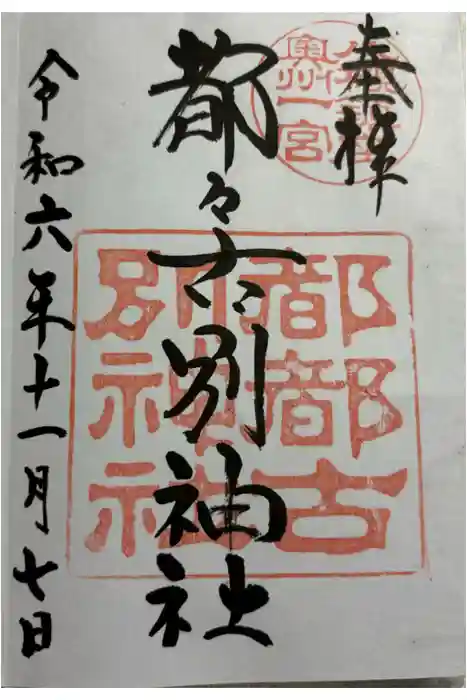 奉拝
奥州一宮
都々古別神社
都都古
別神社
令和六年十一月七日